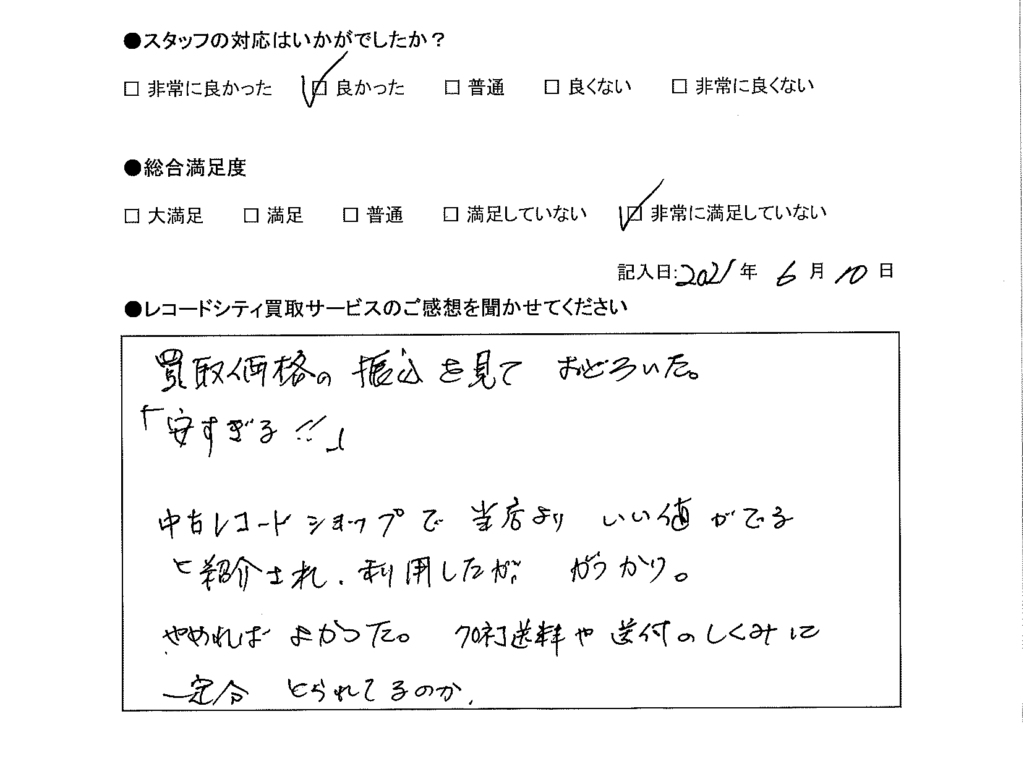 ●スタッフの対応はいかがでしたか？
□ 非常に良かった ☑ 良かった □ 普通 □ 良くない □ 非常に良くない
●総合満足度
□ 大満足 □ 満足 □ 普通 □ 満足していない ☑ 非常に満足していない
記入日:2021年 6月10日
●レコードシティ買取サービスのご感想を聞かせてください
買取価格の振込を見て おどろいた。
「安すぎる!!」
中古レコードショップで当店より いい値がでる
と紹介され、利用したが、がっかり。
やめれば よかった。 送料や 送付のしくみに
一定分 とられてるのか、